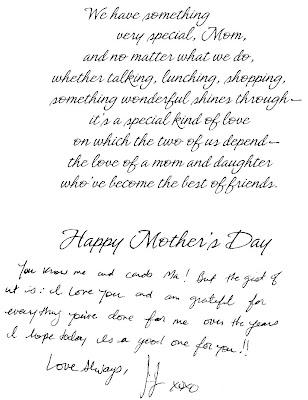 We have something
very special, Mom,
and no matter what we do,
whether talking, lunching, shopping,
something wonderful shines through—
it's a special kind of love
on which the two of us depend—
the love of a mom and daughter
who've become the best of friends.
Happy Mother's Day
You know me and cards Ma! But the gist of
it is: I love you and am grateful for
everything you've done for me over the years
I hope today is a good one for you!!
Love Always,
xoxo